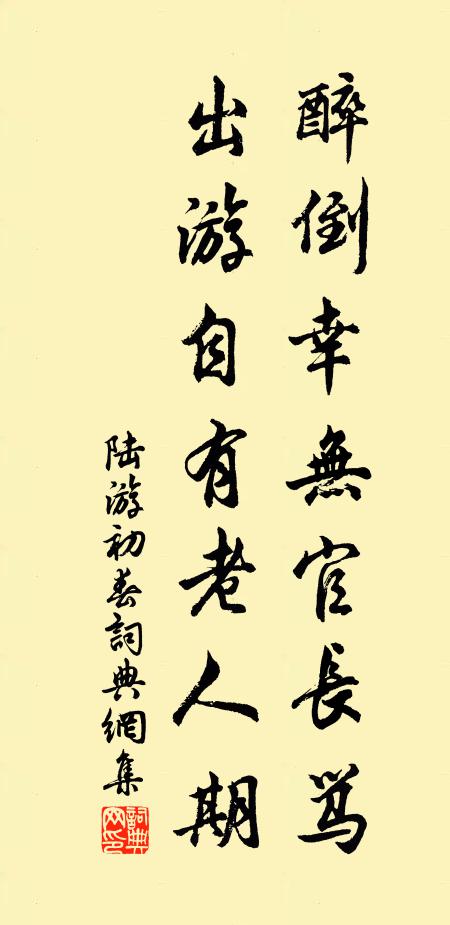 醉倒幸無官長罵
出游自有老人期
陆游初春詞典網集
詞典网印